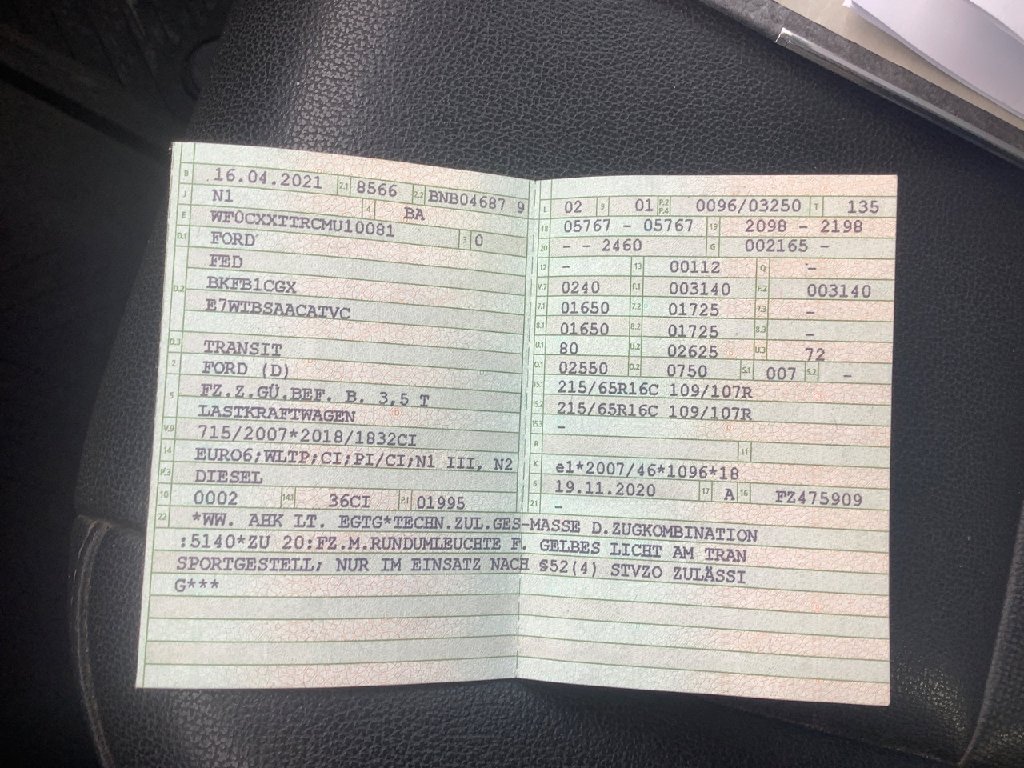 B 16.04.2021 2.1 8566 2.2 BNB04687 9
J N1 4 BA
E WF0CXXTTRCMU10081 3 0
D.1 FORD
FED
D.2 BKFB1CGX
E7WTBSAACATVC
D.3 TRANSIT
2 FORD (D)
5 FZ.Z.GÜ.BEF. B. 3,5 T
LASTKRAFTWAGEN
V.9 715/2007*2018/1832CI
14 EURO6;WLTP;CI;PI/CI;N1 III, N2
P.3 DIESEL
10 0002 14.1 36CI P.1 01995
L 02 9 01 P.2 P.4 0096/03250 T 135
18 05767 - 05767 19 2098 - 2198
20 - - 2460 G 002165 -
12 - 13 00112 Q -
V.7 0240 F.1 003140 F.2 003140
7.1 01650 7.2 01725 7.3 -
8.1 01650 8.2 01725 8.3 -
U.1 80 U.2 02625 U.3 72
O.1 02550 O.2 0750 S.1 007 S.2 -
15.1 215/65R16C 109/107R
15.2 215/65R16C 109/107R
15.3 -
R 11
K e1*2007/46*1096*18
6 19.11.2020 17 A 16 FZ475909
21 -
22 *WW. AHK LT. EGTG*TECHN.ZUL.GES-MASSE D.ZUGKOMBINATION
:5140*ZU 20:FZ.M.RUNDUMLEUCHTE F. GELBES LICHT AM TRAN
SPORTGESTELL; NUR IM EINSATZ NACH §52(4) STVZO ZULÄSSI
G***